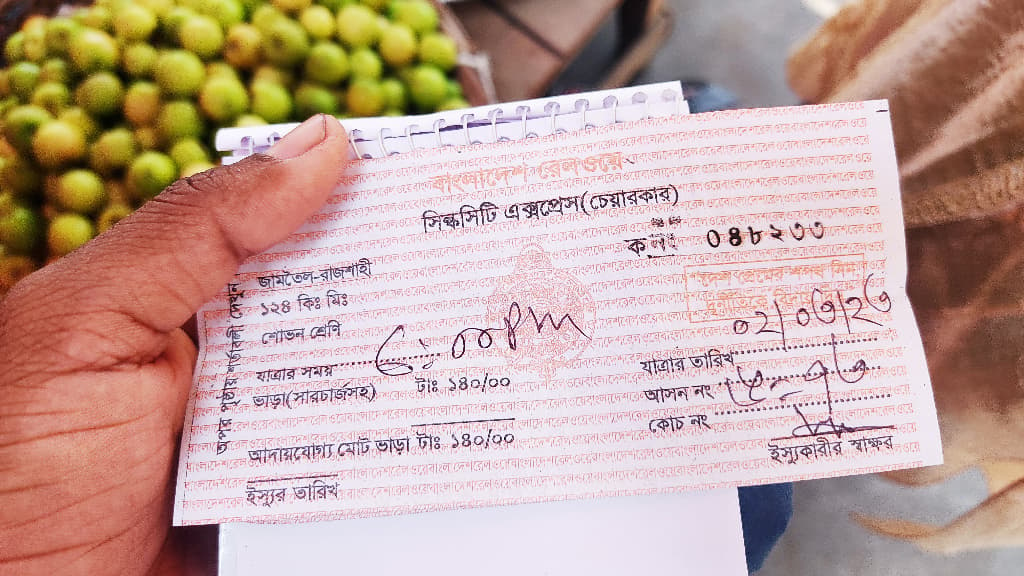 বাংলাদেশ রেলওয়ে
সিল্কসিটি এক্সপ্রেস(চেয়ারকার)
ক নং ০৪৮২৩৩
জামতৈল-রাজশাহী
১২৪ কিঃ মিঃ
শোভন শ্রেণি
যাত্রার সময় ৫:০০pm
ভাড়া(সারচার্জসহ) টাঃ ১৪০/০০
আদায়যোগ্য মোট ভাড়া টাঃ ১৪০/০০
ইস্যুর তারিখ
০২/০৩/২৩
যাত্রার তারিখ
আসন নং
কোচ নং
ইস্যুকারীর স্বাক্ষর
অপর পৃষ্ঠায় শর্তাবলী দেখুন